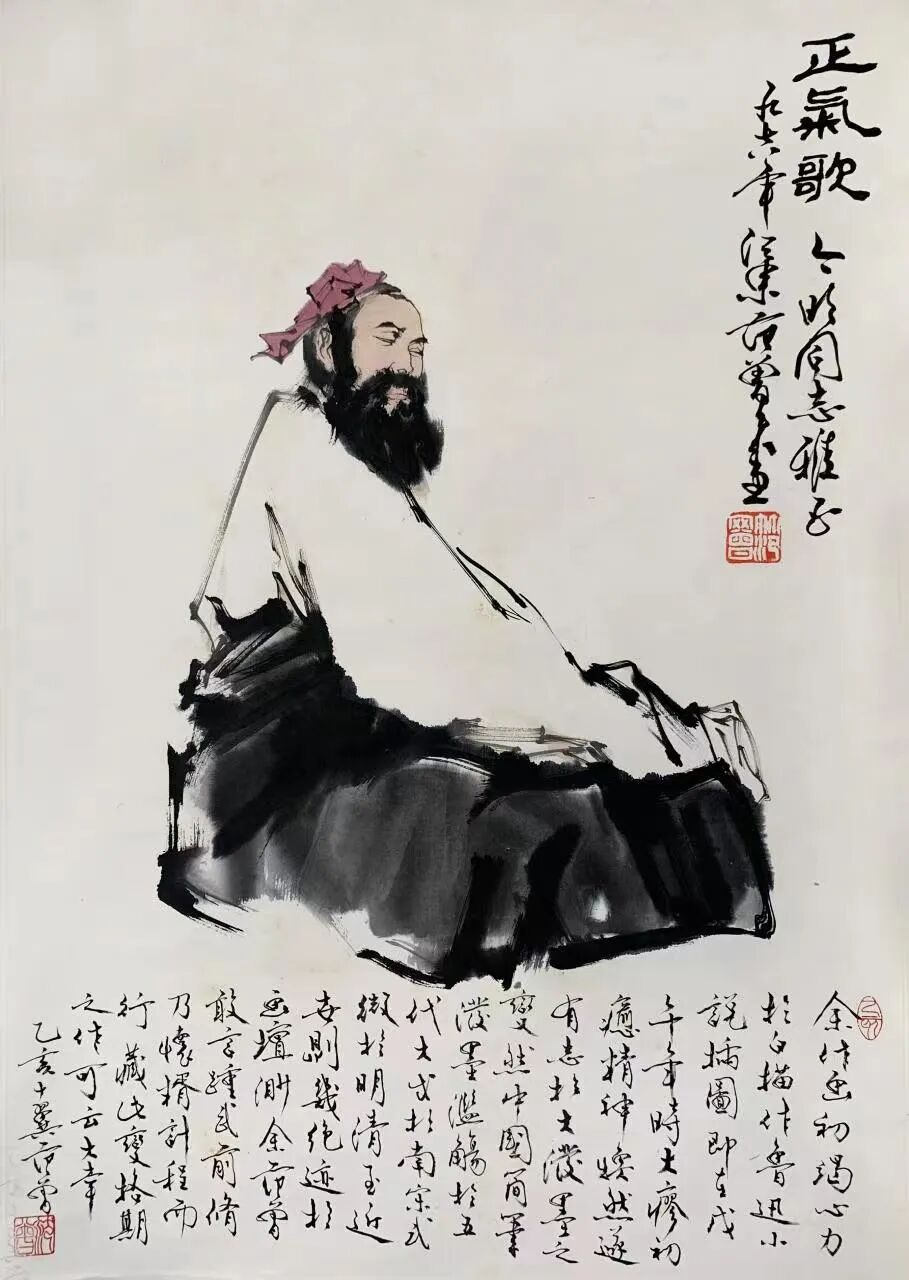 正氣歌 明同志雅正
年 江東范曾畫
余作畫初竭心力
於白描作魯迅小
說插圖即在戊
午年時大瘳初
癒精神煥然遂
有志於大潑墨之
變然中國簡筆
潑墨濫觴於五
代大成於南宋式
微於明清至近
世則幾絕迹於
畫壇 余范曾
敢言踵武前脩
乃懷 計程而
行藏此變格期
之作可云大幸
乙亥十翼范曾